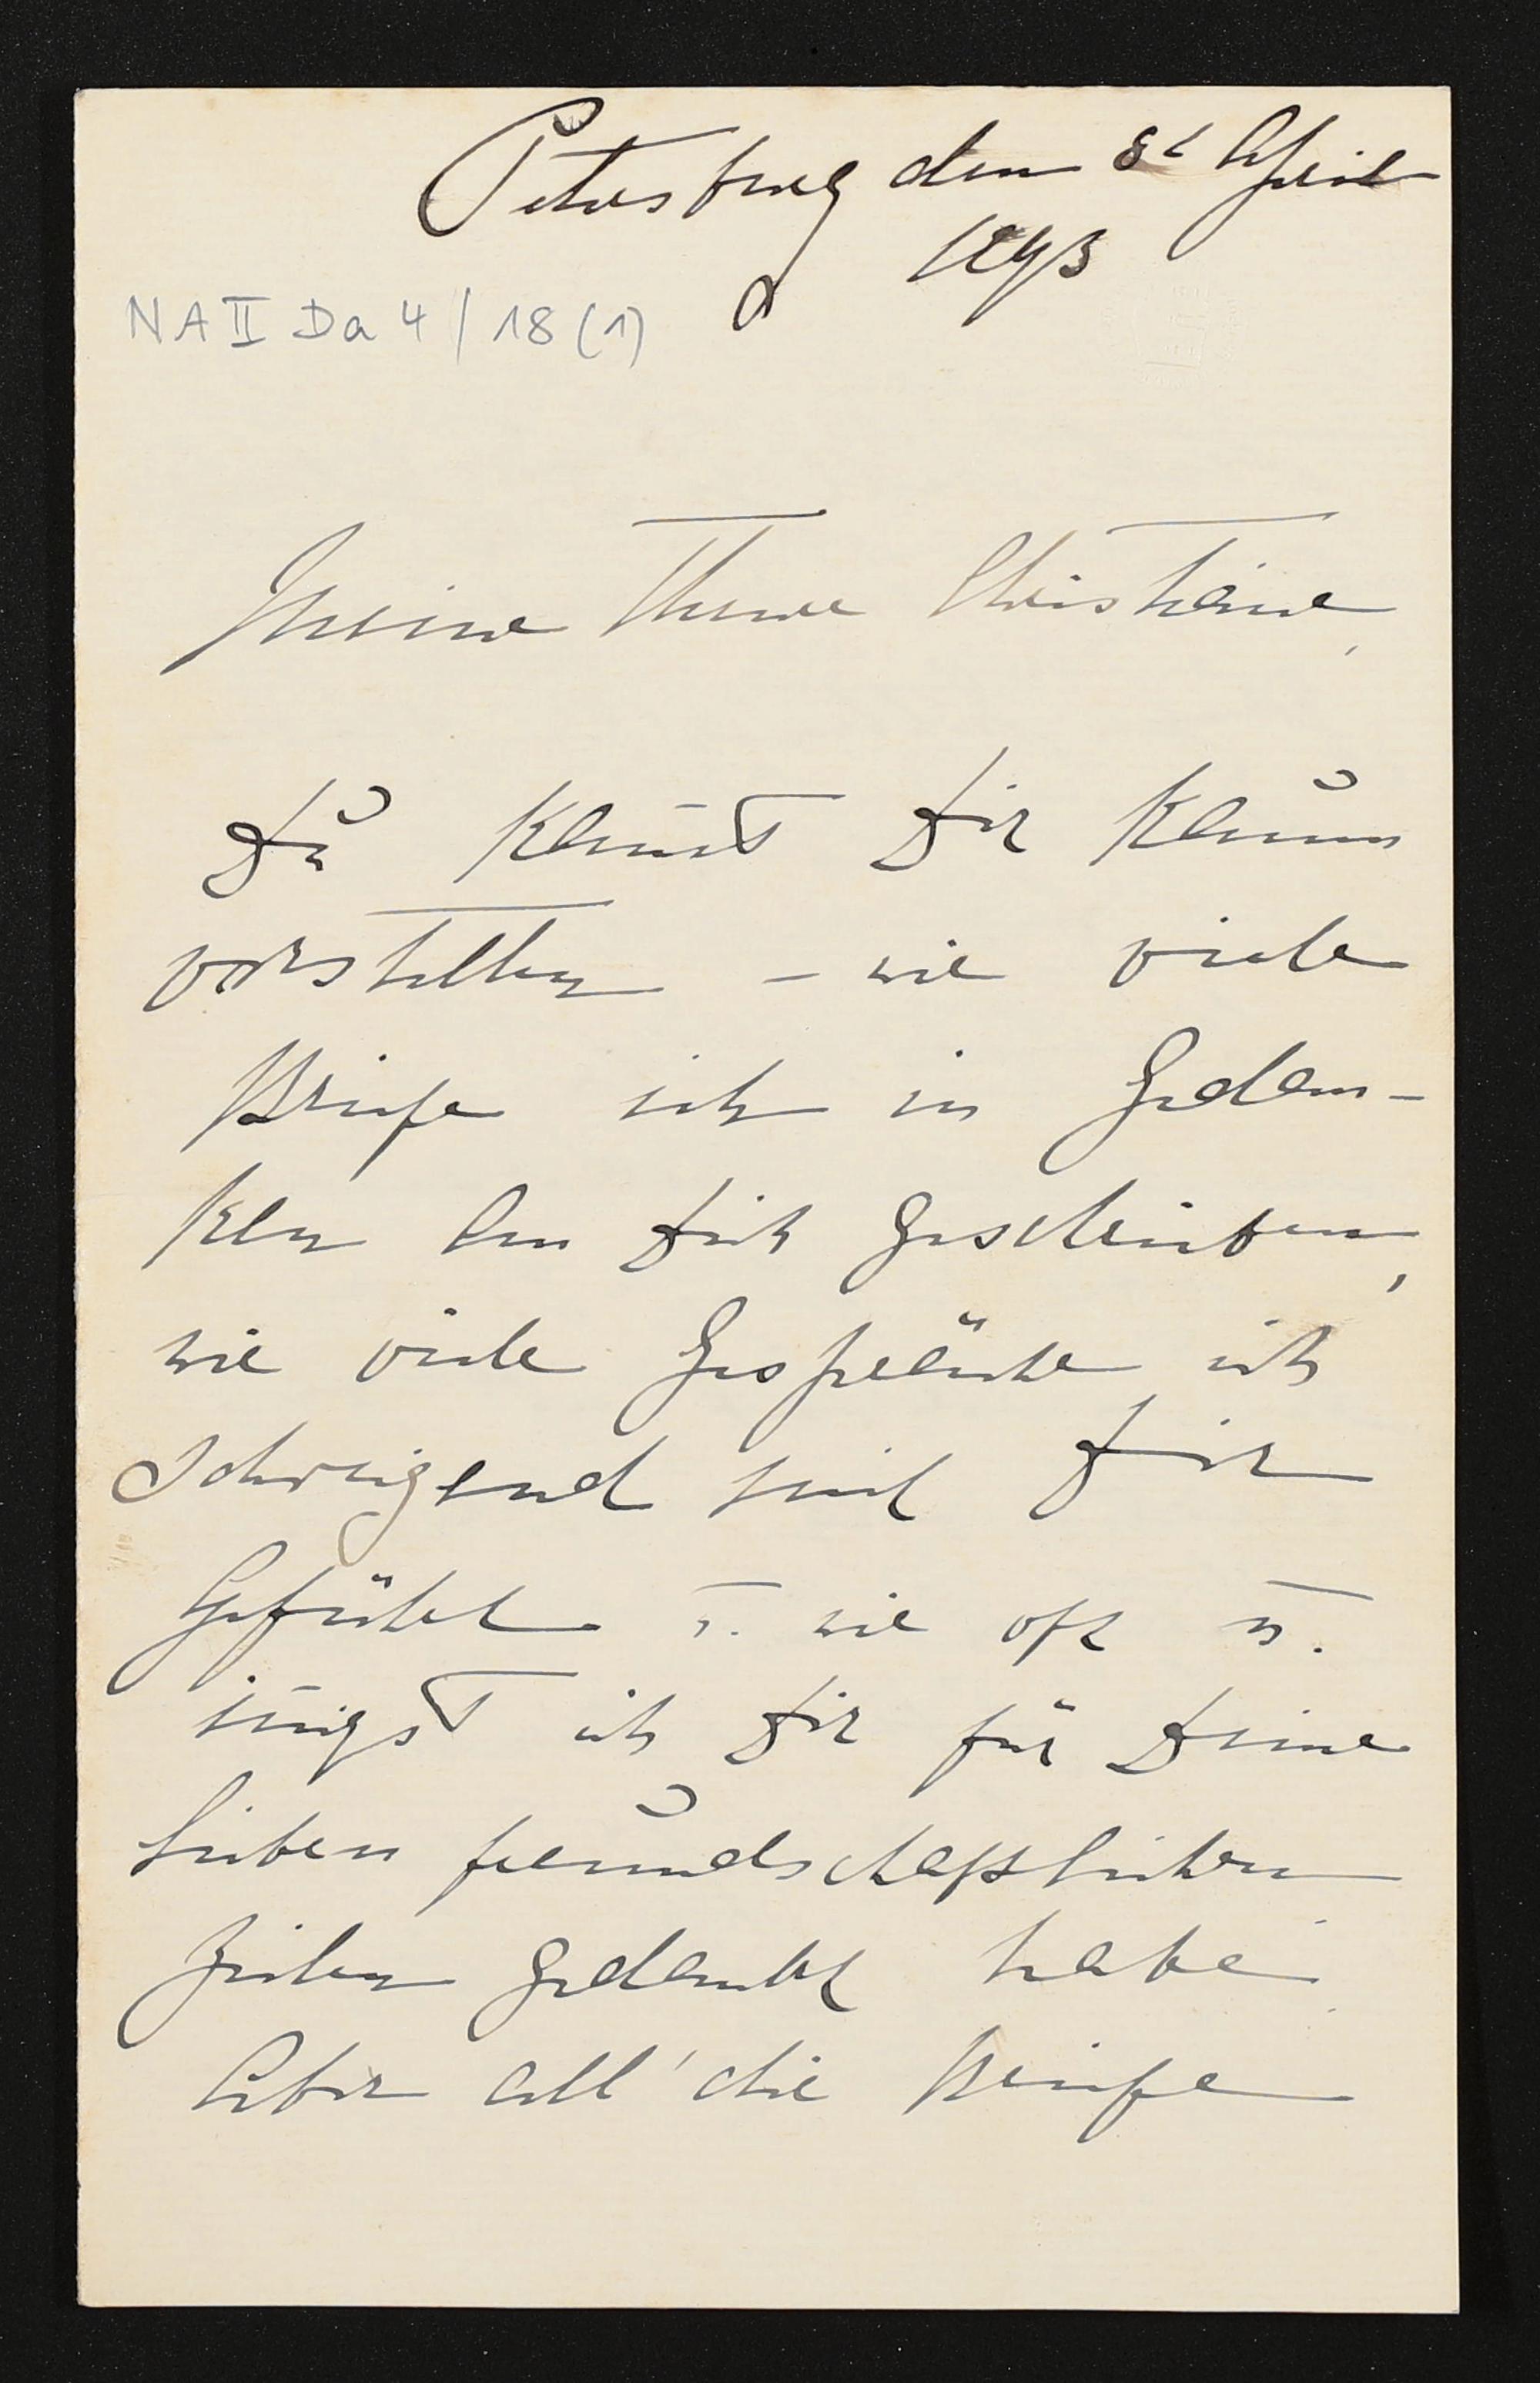 Petersburg den 8t April
1893
NA II Da 4/18 (1)
Meine Theure Christiane,
Du kan̄st Dir kaum
vorstellen – wie viele
Briefe ich in Gedan-
ken an Dich geschrieben,
wie viele Gespräche ich
schweigend mit Dir
Geführt u. wie oft u.
in̄igst ich Dir für Deine
lieben freundschaftlichen
Zeilen gedankt habe
Aber all' die Briefe